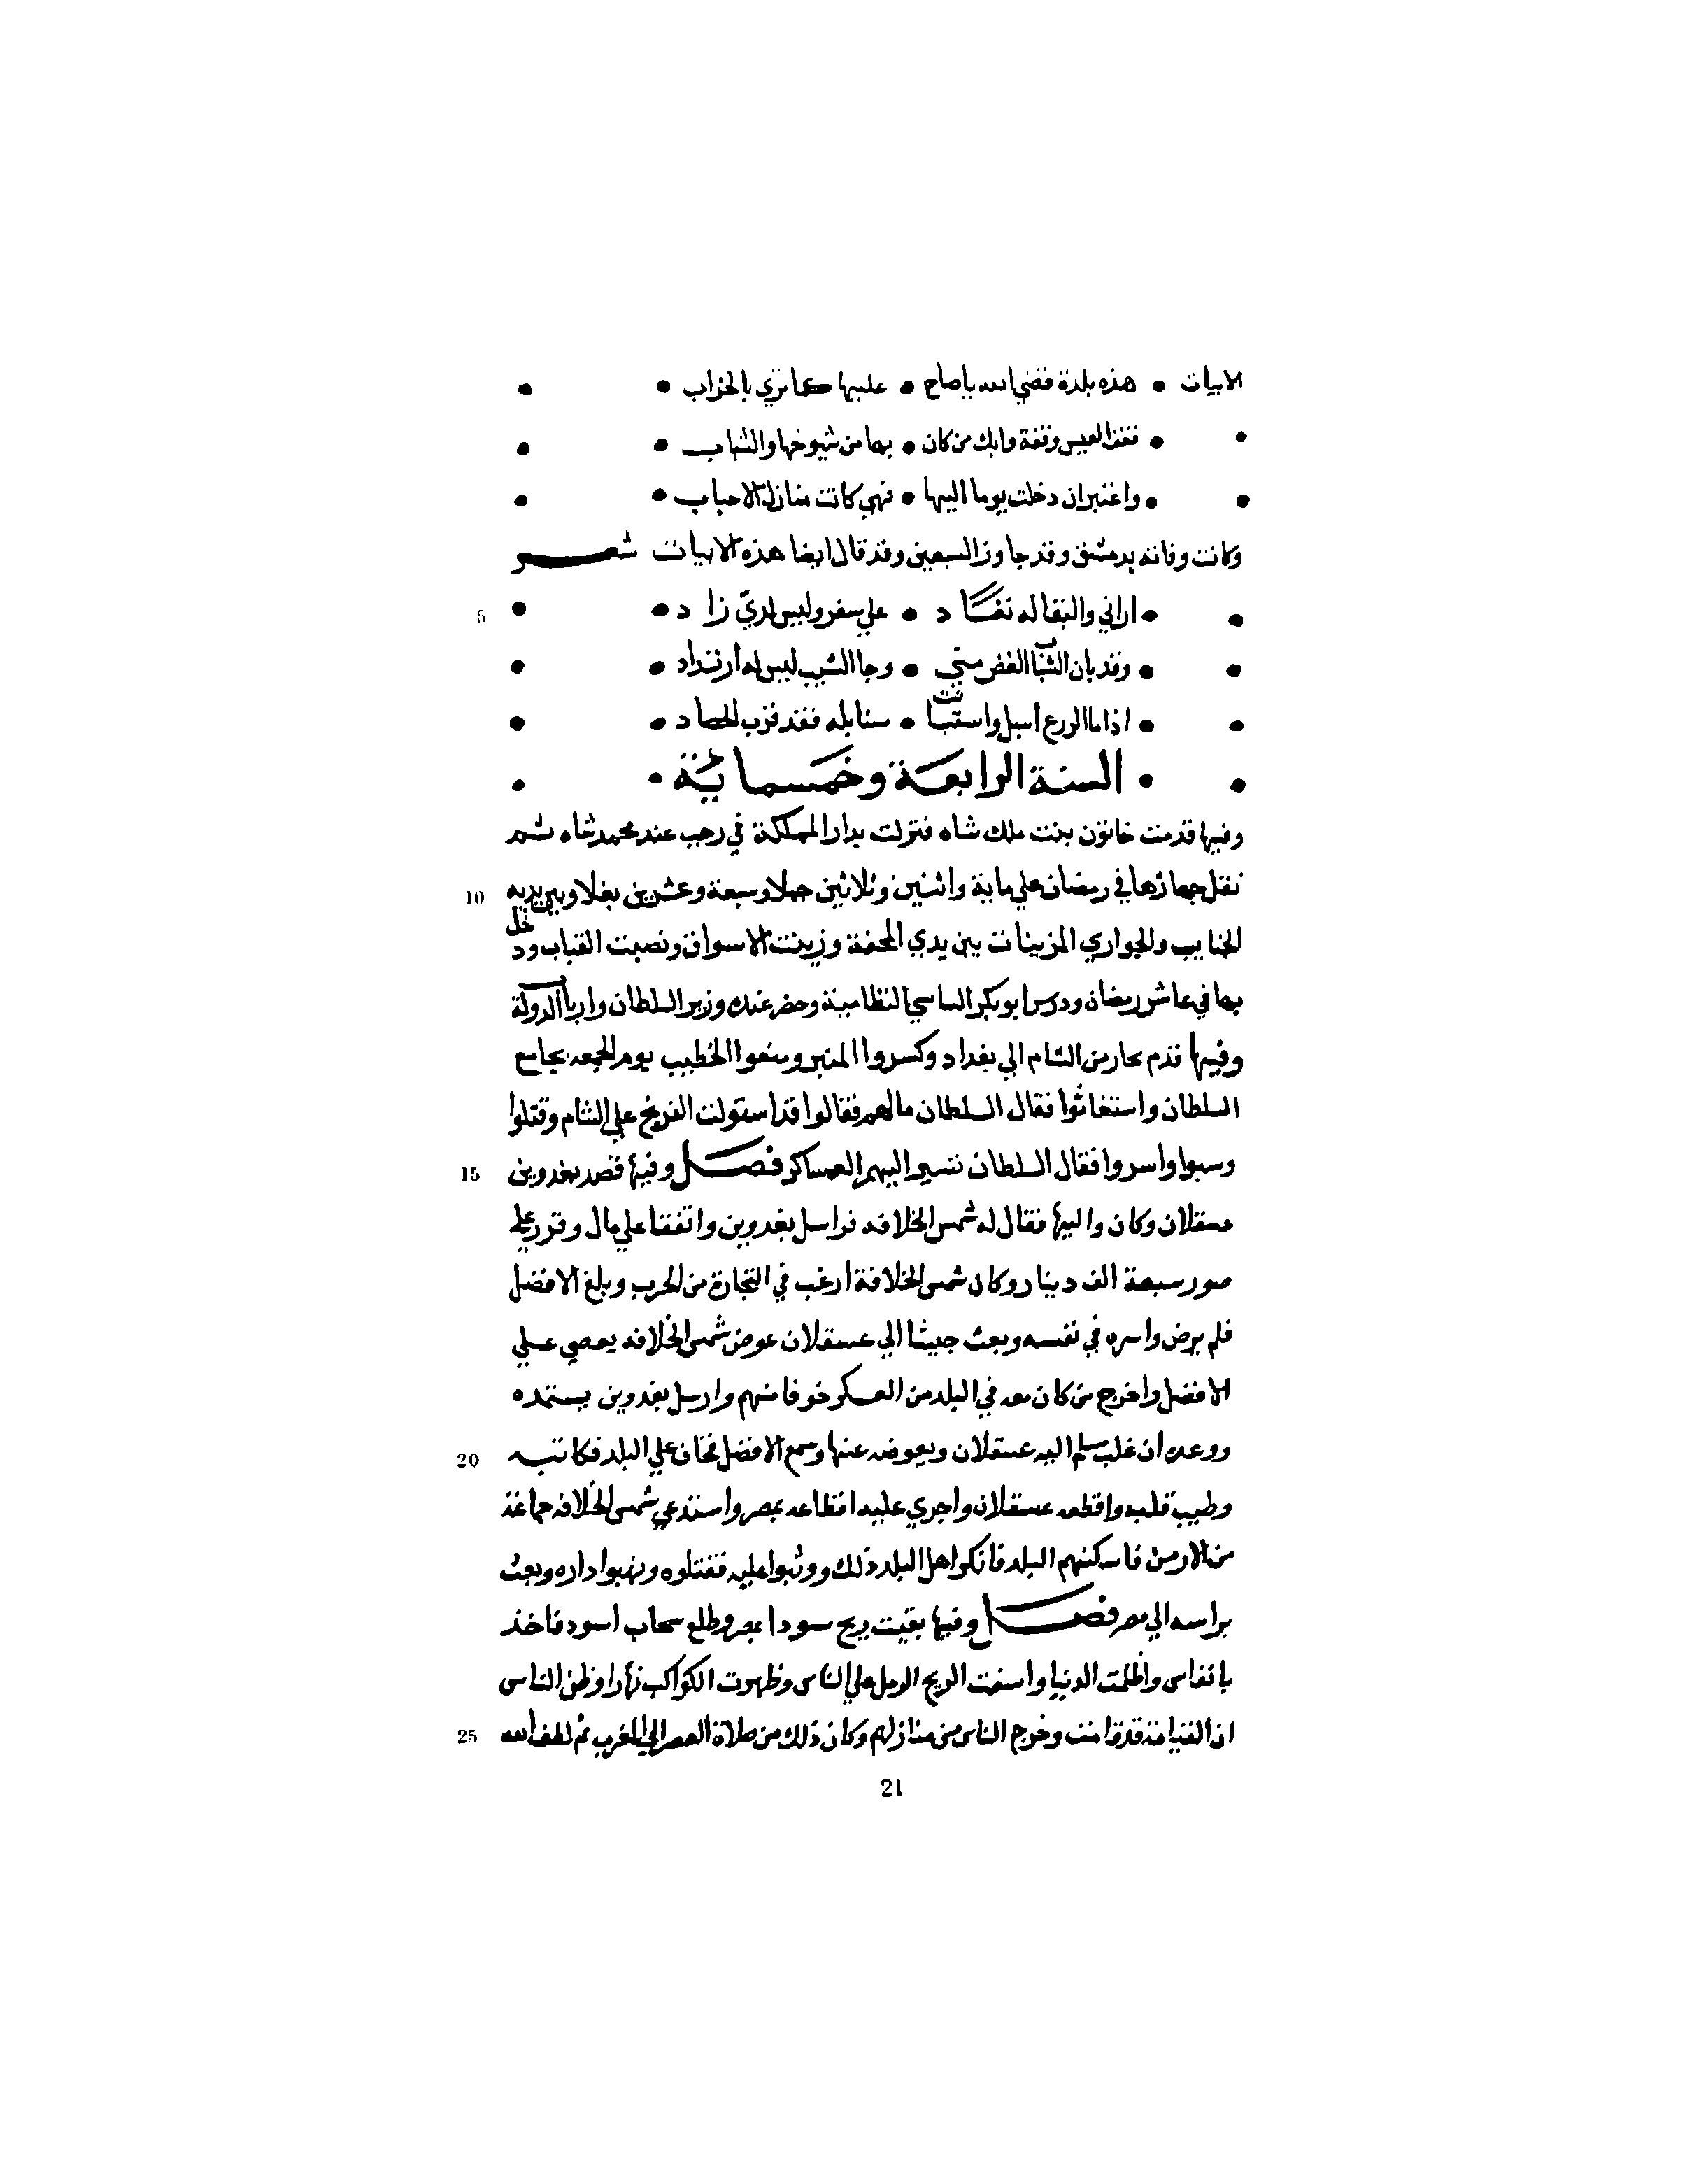 الابيات • هذه بلدة قضي الله ياصاح • عليها كما تري بالخراب • •
• • فقف العيس وقفة وابك من كان • بها من شيوخها والشباب • •
• • واعتبر ان دخلت يوما اليها • فهي كانت منازل الاحباب • •
وكانت وفاته بدمشق وقد جاوز السبعين وقد قال ايضا هذه الابيات شعر
• • اراني والبقا له نفاد • علي سفر وليس لديّ زاد • • 5
• • وقد بان الشباب الغض مني • وجا الشيب ليس له ارتداد • •
• • اذا ما الزرع اسبل واستبانت • سنابله فقد قرب الحصاد • •
• • السنة الرابعة وخمسمائة • •
وفيها قدمت خاتون بنت ملك شاه فنزلت بدار المملكة في رجب عند محمد شاه ثم
نقل جهازها في رمضان علي ماية واثنين وثلاثين جملا وسبعة وعشرين بغلا وبين يديه 10
الجنايب والجواري المزينات بين يدي المحفة وزينت الاسواق ونصبت القباب ودخل
بها في عاشر رمضان ودرس ابو بكر الساسي النظامية وحضر عنده وزير السلطان وارباب الدولة
وفيها قدم تجار من الشام الي بغداد وكسروا المنبر ومنعوا الخطيب يوم الجمعه بجامع
السلطان واستغاثوا فقال السلطان ما لهم فقالوا قد استولت الفرنج علي الشام وقتلوا
وسبوا واسروا فقال السلطان نسير اليهم العساكر فصل وفيها قصد بغدوين 15
عسقلان وكان واليها فقال له شمس الخلافه فراسل بغدوين واتفقا علي مال وقرر علي
صور سبعة الف دينار وكان شمس الخلافة ارغب في التجارة من الحرب وبلغ الافضل
فلم يرض واسره في نفسه وبعث جيشا الي عسقلان عوض شمس الخلافه يعصي علي
الافضل واخرج من كان معه في البلد من العسكر خوفا منهم وارسل بغدوين يستمده
ووعده ان غلب سلم اليه عسقلان ويعوضه عنها وسمع الافضل فخاف علي البلد فكاتبه 20
وطيب قلبه واقطعه عسقلان واجري عليه اقطاعه بمصر واستدعي شمس الخلافه جماعة
من الارمن فاسكنهم البلد فانكر اهل البلد ذلك ووثبوا عليه فقتلوه ونهبوا داره وبعث
براسه الي مصر فصل وفيها بقيت ريح سودا بمصر وطلع سحاب اسود فاخذ
بانفاس واظلمت الدنيا واسفت الريح الرمل علي الناس وظهرت الكواكب نهارا وظن الناس
ان القيامة قد قامت وخرج الناس من منازلهم وكان ذلك من صلاة العصر الي المغرب ثم لطف الله 25
21